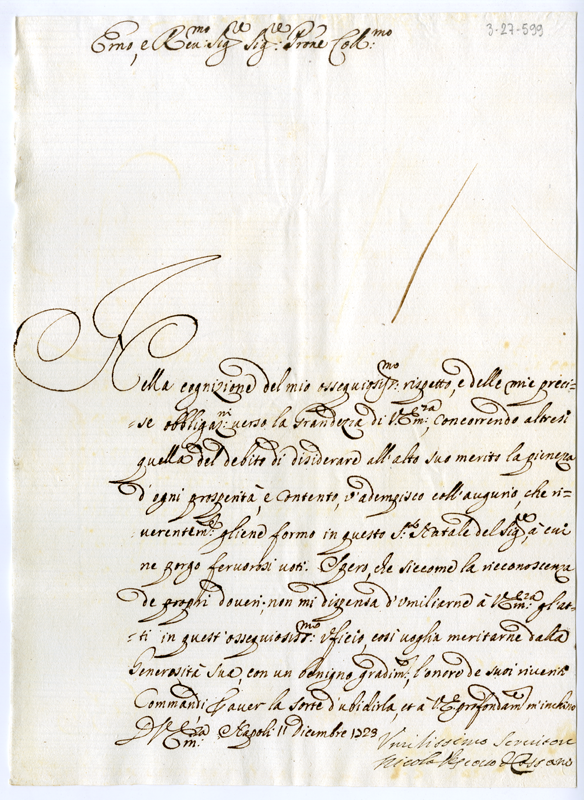 3-27-599
Emo, e Reu:mo Sig:re Sig:re Prone Coll:mo
Nella cognizione del mio ossequiosiss:mo rispetto, e delle mie preci=
=se obbligaz:ni verso la Grandezza di V.Em:za, concorrendo altresi
quella del debito di disiderare all'alto suo merito la pienezza
d'ogni prosperità, e contento, v'adempisco coll'augurio, che ri=
verentem:te gliene formo in questo S:to Natale del Sig:re, à cui
ne porgo fervorosi voti. Spero, che siccome la riconoscenza
de proprj doveri non mi dispensa d'umiliarne à V.Em:za gl'at=
=ti in quest'ossequiosiss:mo Uficio, così voglia meritarne dalla
Generosità Sua, con un benigno gradim:to, l'onore de suoi riveriti
Commandi, p aver la sorte d'ubidirla, et à V.E. profondam:te m'inchino
D V.Em:za Napoli 11 Dicembre 1723
Umilissimo Servitore
Nicola Vescovo di Rossano